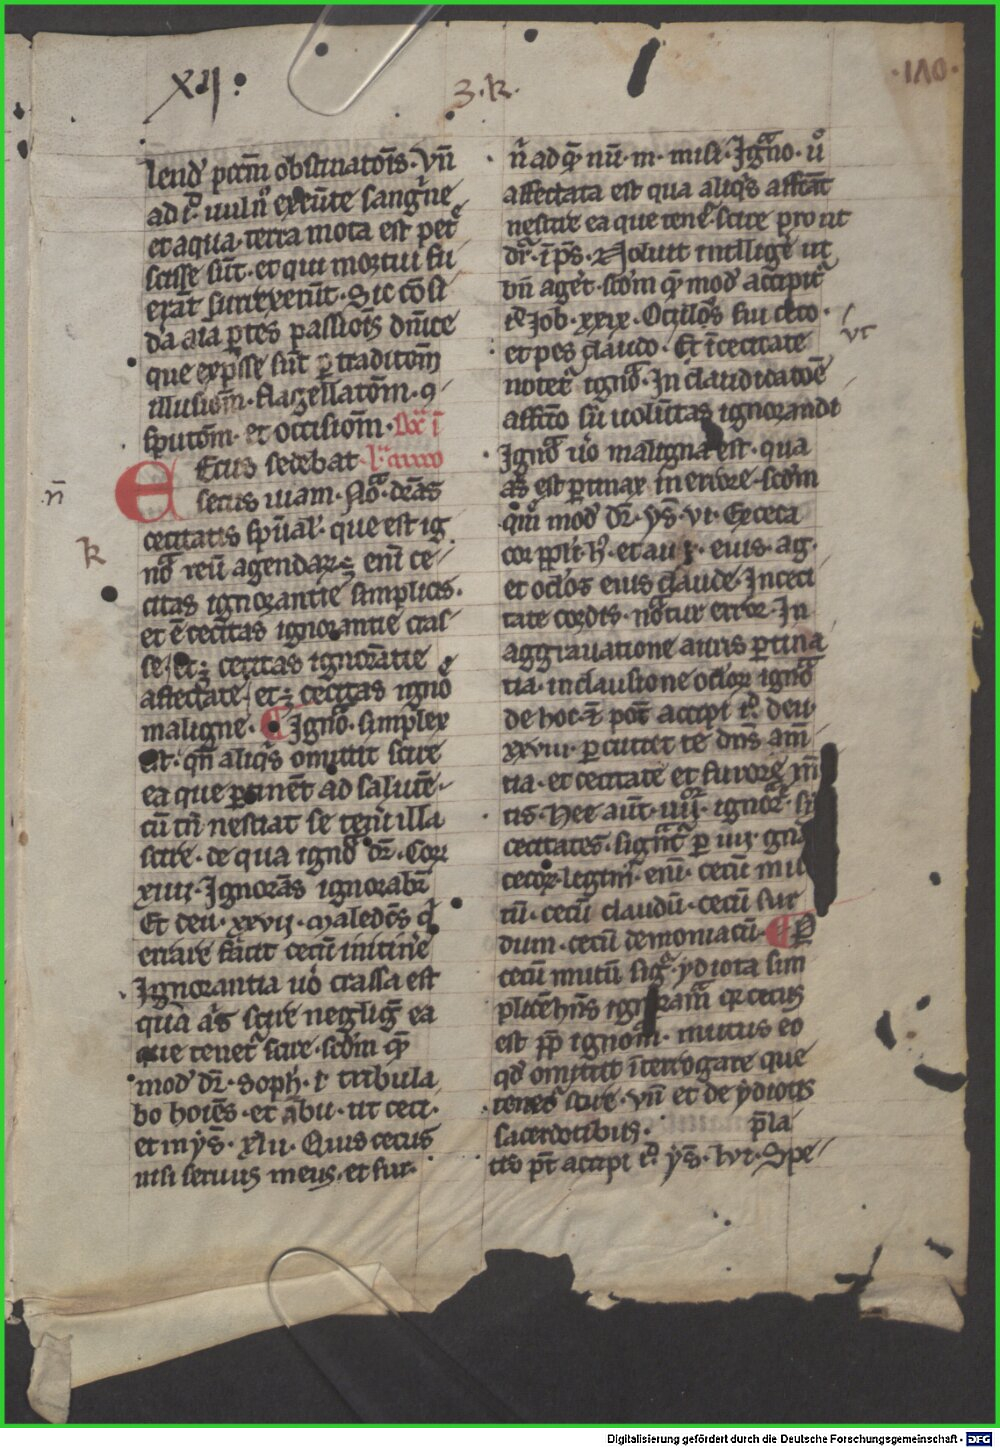 XII
3. k.
lend͛ pctm̄ obstinatois̄. Vn̄
ad ic̊. uuln͛ exeūte sangīne
et aqua. terra mota est pet͛
scisse sūt. et qui mortui fu
erāt surrexerūt. Sic cōsi
da aīa ꝑtes passiois̄ dn̄ice
que exp̄sse sūt ꝑ traditom̄
illusiom̄. flagellatom̄. ꝯ
sputom̄. et occisiom̄.
Ecus sedebat
secus uiam. Noͣ. dr̄as
cecitatis sp̄ual͛. que est ig
noͣ reū agendaꝝ. ē enī ce
citas ignorantie simplicis.
et ē cecitas ignorantie cras
se. et ē cecitas ignorātie
affectate. et ē cecitas ignō
maligne. Ignōͣ. simplex
est. qn̄ aliqͥs omittit scire
ea que ꝑtinēt ad salutē.
cū tn̄ nesciat se tenͥi illa
scire. de qua ignoͣ dr̄. Cor.
xiiii. Ignorās ignorabr̄
Et deu. xxvii. Maledcs̄ qͥ
errare facit cecū in itin̄e
Ignorantia uͦo crassa est
qua aͥs scire negligͭ ea
que tenetᷣ scire. scdm̄ quē
mod͛ dr̄. Soph. i. tribula
bo hoies̄. et ābu. ut ceci.
et in ys̄. xlii. Quis cecus
nisi seruus meus. et sur.
n̄ ad quē nū. m. misi. Igͣno. uͦ
affectata est qua aliqͥs affcāt
nescire ea que tenetᷣ scire prout
dr̄. ī ps̄. Noluit intellige ut
bn̄ aget͛. scdm̄ quē mod͛ accipitᷣ
ic̊ Job. xxix. Oculus fui ceco.
ut
et pes claudo. Et ī cecitate
notetᷣ ignoͣ. In claudicatōe
affcio siͥ uolūtas ignorandi
Ignoͣ uͦo maligna est. qua
aͥs est ꝑtinax in errore. scdm̄
quē mod͛ dr̄. ys̄. vi. Exceca
cor ppl̄i hͥ. et aures eius. ag.
et oclos eius claude. In ceci
tate cordis. notͣur error. In
aggrauatione auris ꝑtina
tia. in clausione oclorꝝ ignoͣ
de hoc ē pōt accipi ic̊. deu.
xxviii. ꝑcutiet te dn̄s amē
tia. et cecitate et furore mē
tis. Hee aūt. iiii. ignorͣ. siͥ
cecitates. signāt͛ ꝑ iiii. gn̄a
cecoꝝ. legimͥ. enī. cecū mu
tū. cecū claudū. cecū sur
dum. cecū demoniacū. Ꝑ
cecū mutū sigͣ. ydiota sim
plicē hn̄s ignoram̄ qͥ cecus
est pp̄ ignom̄. mutus eo
qd̄ omittit ītrrogare que
tenetᷣ scire. vn̄ et de ydiotis
sacerdotibus. p̄la
tis pōt accipi ic̊. ys̄. lvi. Spe
n̄
k
Digitalisierung gefördert durch die Deutsche Forschungsgemeinschaft - DFG